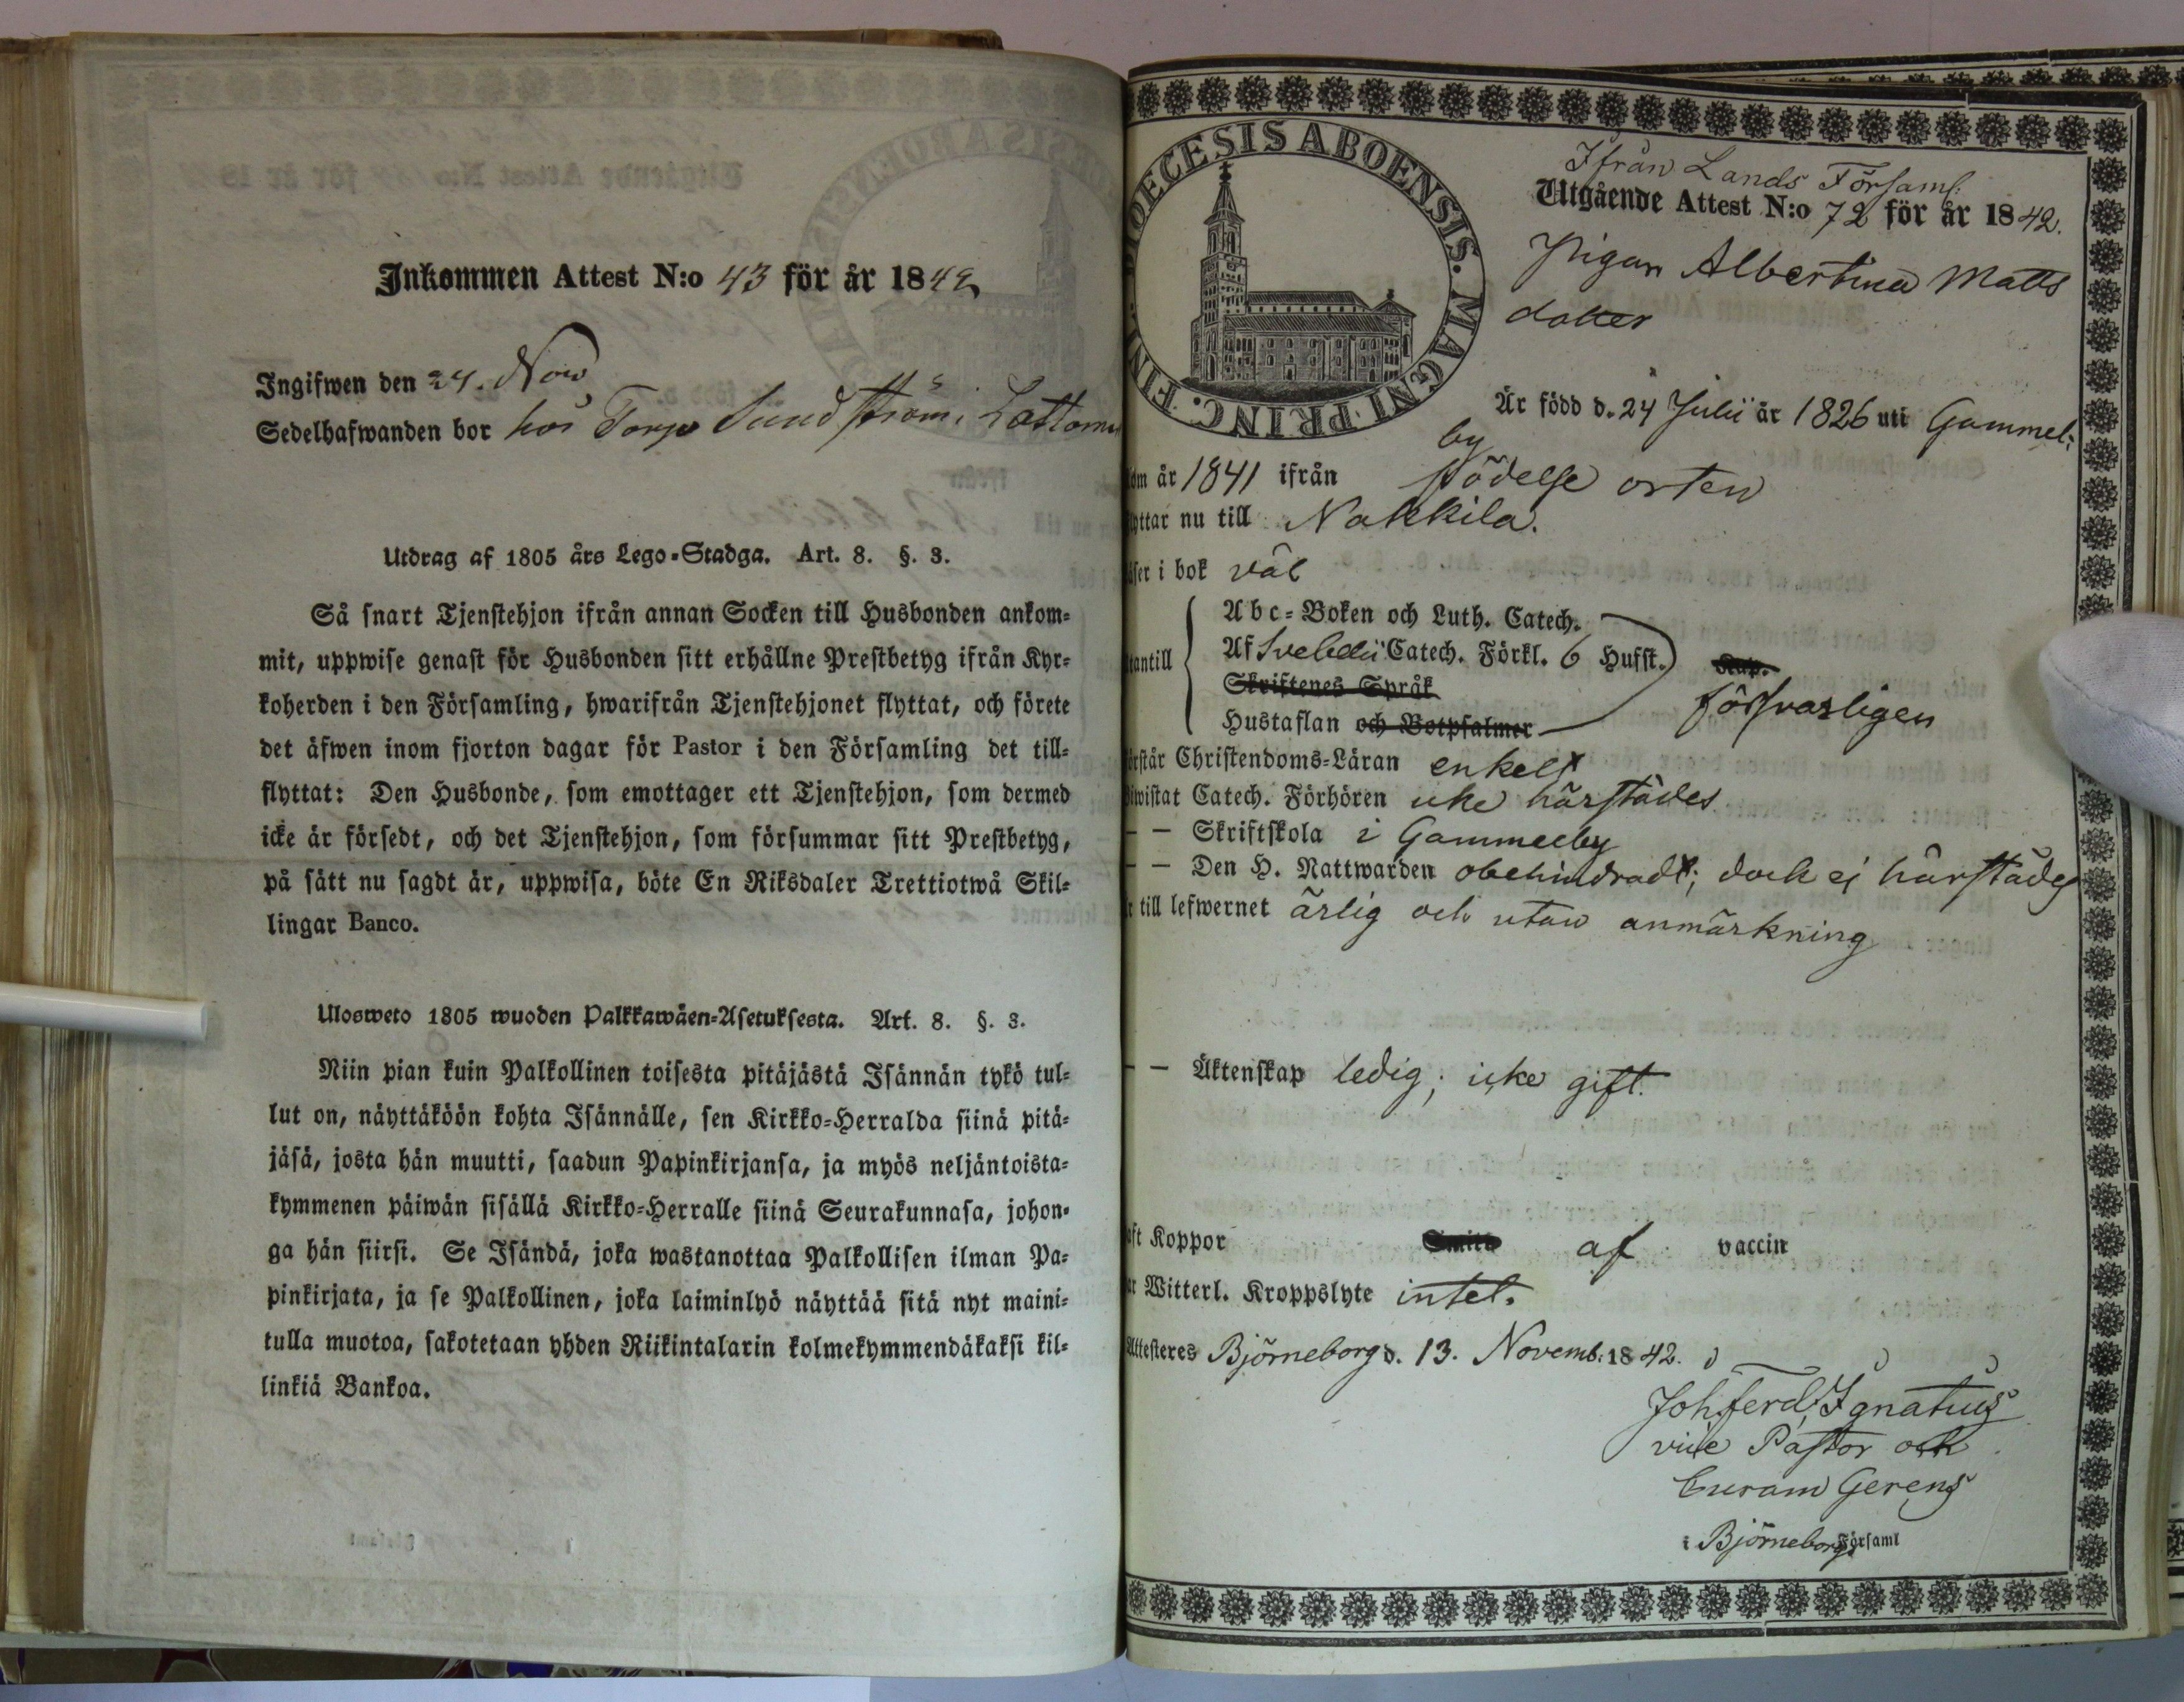 Inkommen Attest N:o 43 för år 1842
Ingifwen den 24. Nov
Sedelhafwanden bor hos Torp Sundström i Lattom
Utdrag af 1805 års Lego-Stadga. Art. 8. §. 3.
Så snart Tjenstehjon ifrån annan Socken till Husbonden ankom-
mit, uppwise genast för Husbonden sitt erhållne Prestbetyg ifrån Kyr-
koherden i den Församling, hwarifrån Tjenstehjonet flyttat, och förete
det äfwen inom fjorton dagar för Pastor i den Församling det till-
flyttat: Den Husbonde, som emottager ett Tjenstehjon, som dermed
icke är försedt, och det Tjenstehjon, som försummar sitt Prestbetyg,
på sätt nu sagdt är, uppwisa, böte En Riksdaler Trettiotwå Skil-
lingar Banco.
Ulosweto 1805 wuoden Palkkawäen-Asetuksesta. Art. 8. §. 3.
Niin pian kuin Palkollinen toisesta pitäjästä Isännän tykö tul-
lut on, näyttäköön kohta Isännälle, sen Kirkko-Herralda siinä pitä-
jäsä, josta hän muutti, saadun Papinkirjansa, ja myös neljäntoista-
kymmenen päiwän sisällä Kirkko-Herralle siinä Seurakunnasa, johon-
ga hän siirsi. Se Isändä, joka wastanottaa Palkollisen ilman Pa-
pinkirjata, ja se Palkollinen, joka laiminlyö näyttää sitä nyt maini-
tulla muotoa, sakotetaan yhden Riikintalarin kolmekymmendäkaksi kil-
linkiä Bankoa.
DIOECESIS ABOENSIS. MAGNI PRINC. FIN
Ifrån Lands Församl:
Utgående Attest N:o 72 för år 1842.
Pigan Albertina Matts
dotter
Är född d. 24 Julii år 1826 uti Gammel:
by
om år 1841 ifrån födelse orten
yttar nu till Nakkila.
äser i bok väl
Abc-Boken och Luth. Catech.
tantill Af Svebelii Catech. Förkl. 6 Hufst. Kap.
Skriftenes Språk försvarligen
Hustaflan och Botpsalmer
örstår Christendoms-Läran enkelt
iwistat Catech. Förhören icke härstädes
– – Skriftskola i Gammelby
– – Den H. Nattwarden obehindradt; dock ej härstädes
r till lefwernet ärlig och utan anmärkning
– – Äktenskap ledig; icke gift.
aft Koppor af vaccin
ar Witterl. Kroppslyte intet.
Attesteres Björneborg d. 13. Novemb: 1842.
Joh. Ferd. Ignatius
vice Pastor och
Curam Gerens
i Björneborgs Församl